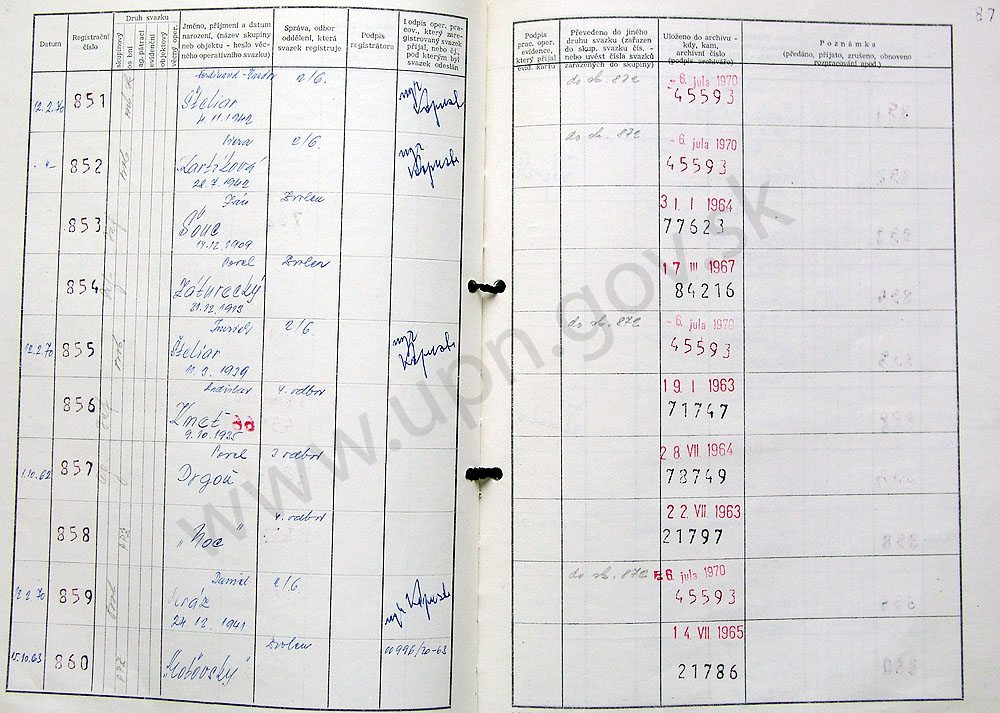 87
Datum
Registrační číslo
Druh svazku
skupinový
osobní
ag. pátrací
evidenční
objektový
věcný oper.
Jméno, příjmení a datum
narození, (název skupiny
neb objektu - heslo věc-
ného operativního svazku)
Správa, odbor
oddělení, která
svazek registruje
Podpis
registrátora
Podpis oper. pra-
cov., který zare-
gistrovaný svazek
přijal, neb čj.
pod kterým byl
svazek odeslán
Podpis
prac. oper.
evidence,
který přijal
evid. kartu
Převedeno do jiného
druhu svazku (zařazen
do skup. svazku čís. -
nebo uvést čísla svazků
zařazených do skupiny)
Uloženo do archivu -
kdy, kam,
archivní číslo
(podpis archiváře)
Poznámka
(předáno, přijato, zrušeno, obnoveno
rozpracování apod.)
12.2.70 851 Šteliar 2/6. 4.11.1942 do sk. 872 - 6. júla 1970 45593
-"- 852 Viera 2/6. 28.7.1942 do sk. 872 - 6. júla 1970 45593
853 Ján Zvolen Šouc 14.12.1909 31 I 1964 77623
854 Pavel Zvolen Záturecký 31.12.1913 17 III 1967 84216
12.2.70 855 Imrich 2/6 Šteliar 11.3.1939 do sk. 872 - 6. júla 1970 45593
856 Ladislav 4. odbor Kmeť 9.10.1935 19. I 1963 71747
1.10.62 857 Pavel 3 odbor Drgoň 28 VII 1964 78749
858 4. odbor „Noc" 22 VII. 1963 21797
12.2.70 859 Daniel 2/6. Mráz 24.12.1941 do sk. 872 6. júla 1970 45593
15.10.63 860 Zvolen "Motovský" 00996/20-63 14 VII. 1965 21786
www.upn.gov.sk